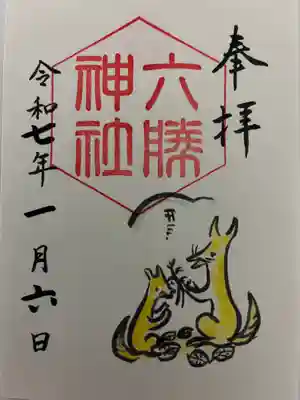 奉拝
六勝
神社
令和七年一月六日